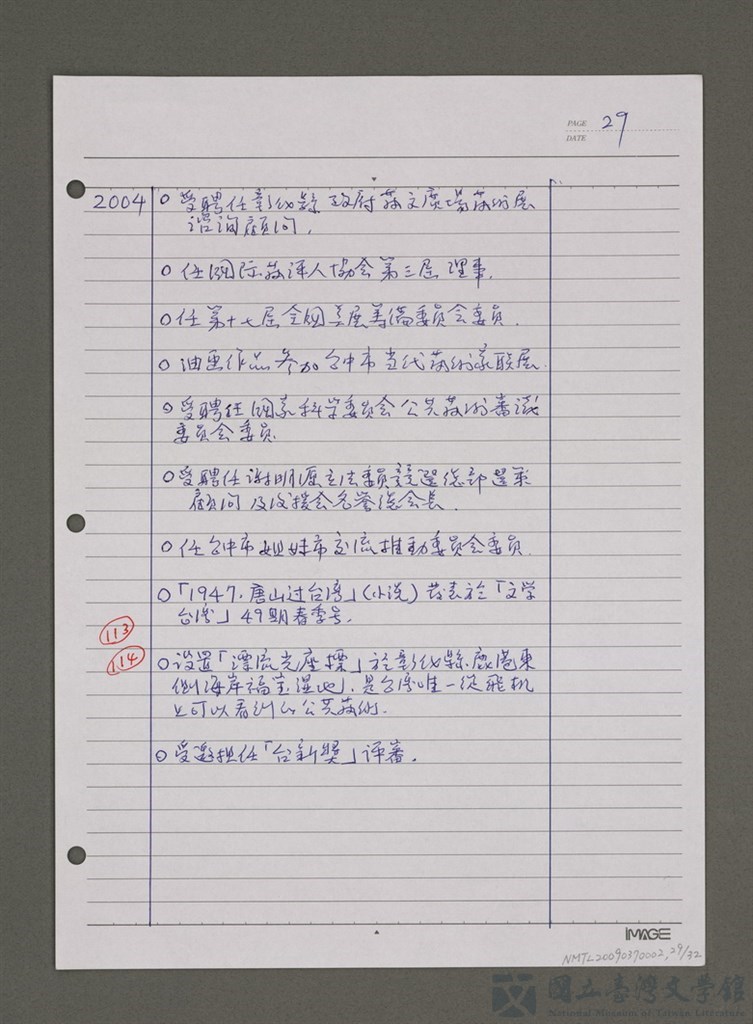 PAGE 29
DATE
2004 ○ 受聘任彰化縣政府藝文廣場藝術展
諮詢顧問.
○ 任國际藝评人協会第三屆理事.
○ 任第十七屆全國美展籌備委員会委員.
○ 油画作品參加台中市当代藝術家联展.
○ 受聘任國家科学委員会公共藝術審議
委員会委員.
○ 受聘任謝明源立法委員競選總部選策
顧問及後援会名誉總会長.
○ 任台中市姐妹市交流推動委員会委員.
○「1947.唐山过台湾」(小说) 发表於「文学
台湾」49期春季号.
113
114
○ 设置「漂流光座標」於彰化縣鹿港東
側海岸福宝湿地,是台湾唯一從飛机
上可以看到的公共藝術.
○ 受邀担任「台新獎」评審.
IMAGE
NMTL20090370002,29/32
國立臺灣文學館
National Museum of Taiwan Literature